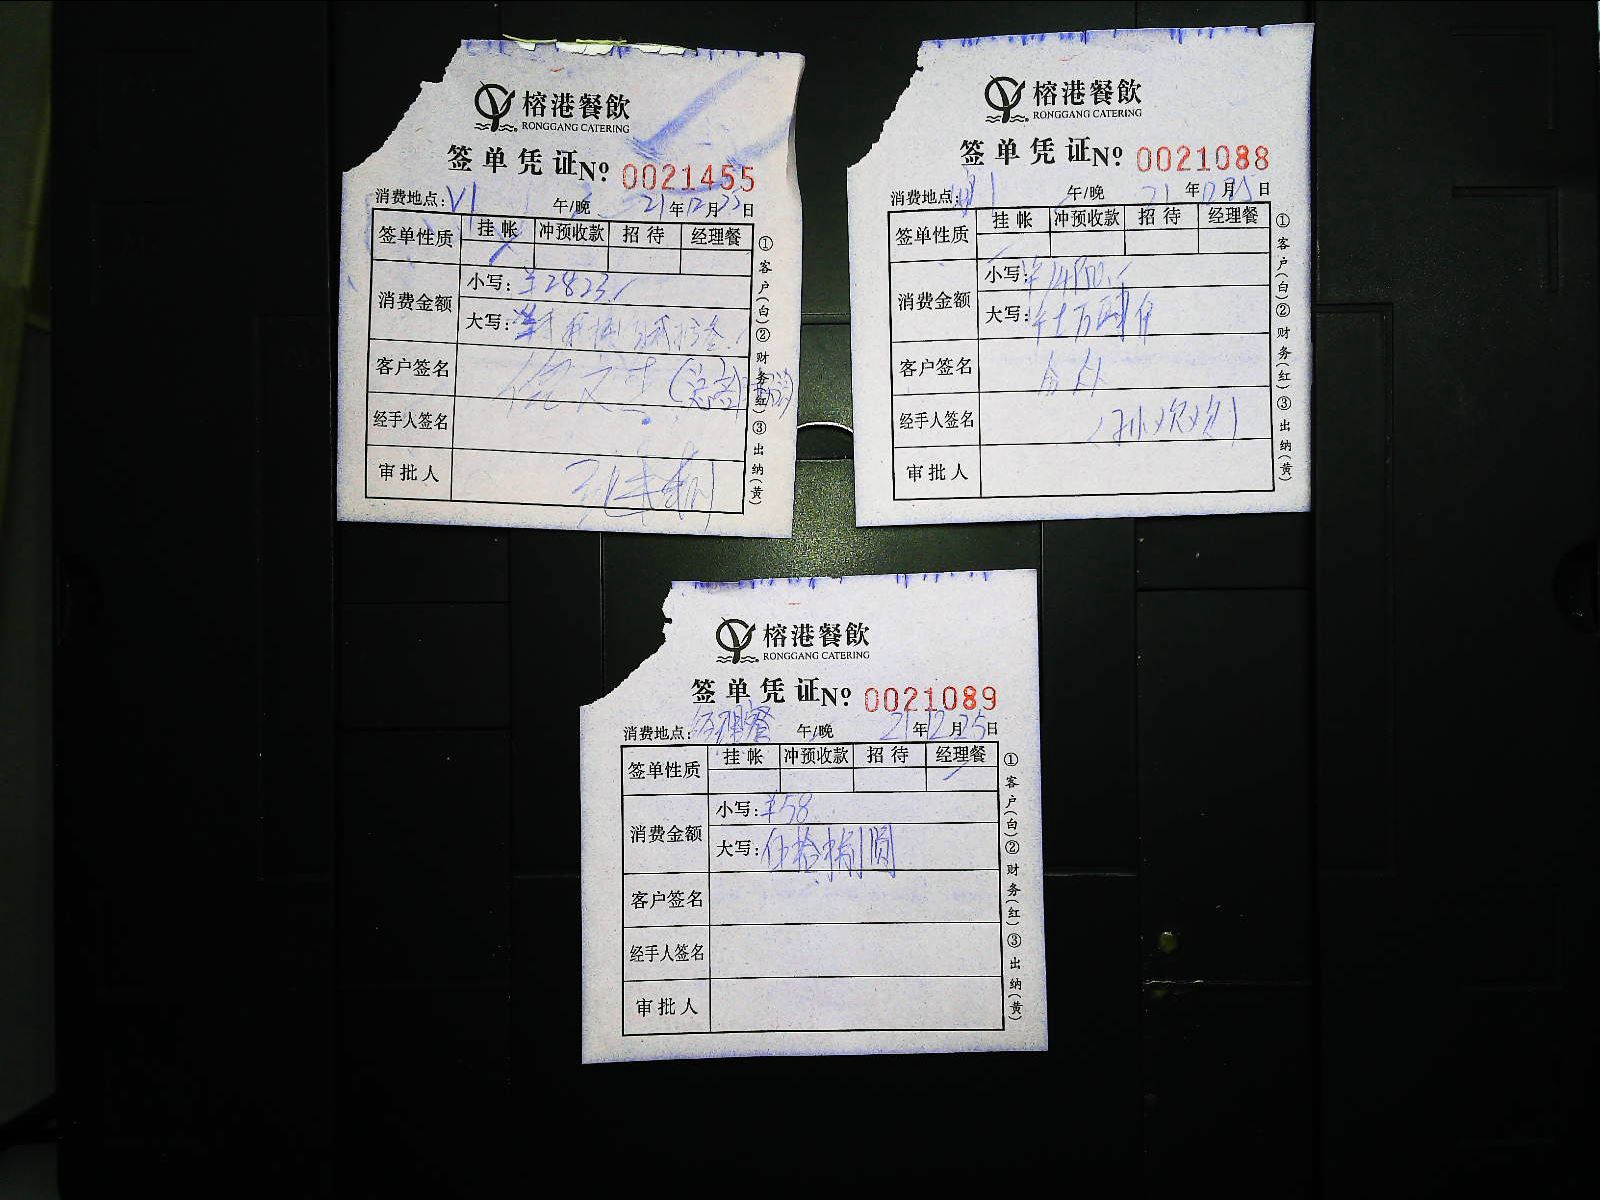 榕港餐飲
RONGGANG CATERING
签单凭证 Nº 0021455
消费地点: V1 午/晚 21年12月25日
签单性质 挂帐 冲预收款 招待 经理餐
消费金额 小写: ¥2823
大写:
客户签名
经手人签名
审批人
①客户(白)②财务(红)③出纳(黄)
榕港餐飲
RONGGANG CATERING
签单凭证 Nº 0021088
消费地点: 午/晚 21年12月25日
签单性质 挂帐 冲预收款 招待 经理餐
消费金额 小写:
大写:
客户签名
经手人签名
审批人
①客户(白)②财务(红)③出纳(黄)
榕港餐飲
RONGGANG CATERING
签单凭证 Nº 0021089
消费地点: 经理餐 午/晚 21年12月25日
签单性质 挂帐 冲预收款 招待 经理餐
消费金额 小写: ¥58
大写: 伍拾捌圆
客户签名
经手人签名
审批人
①客户(白)②财务(红)③出纳(黄)